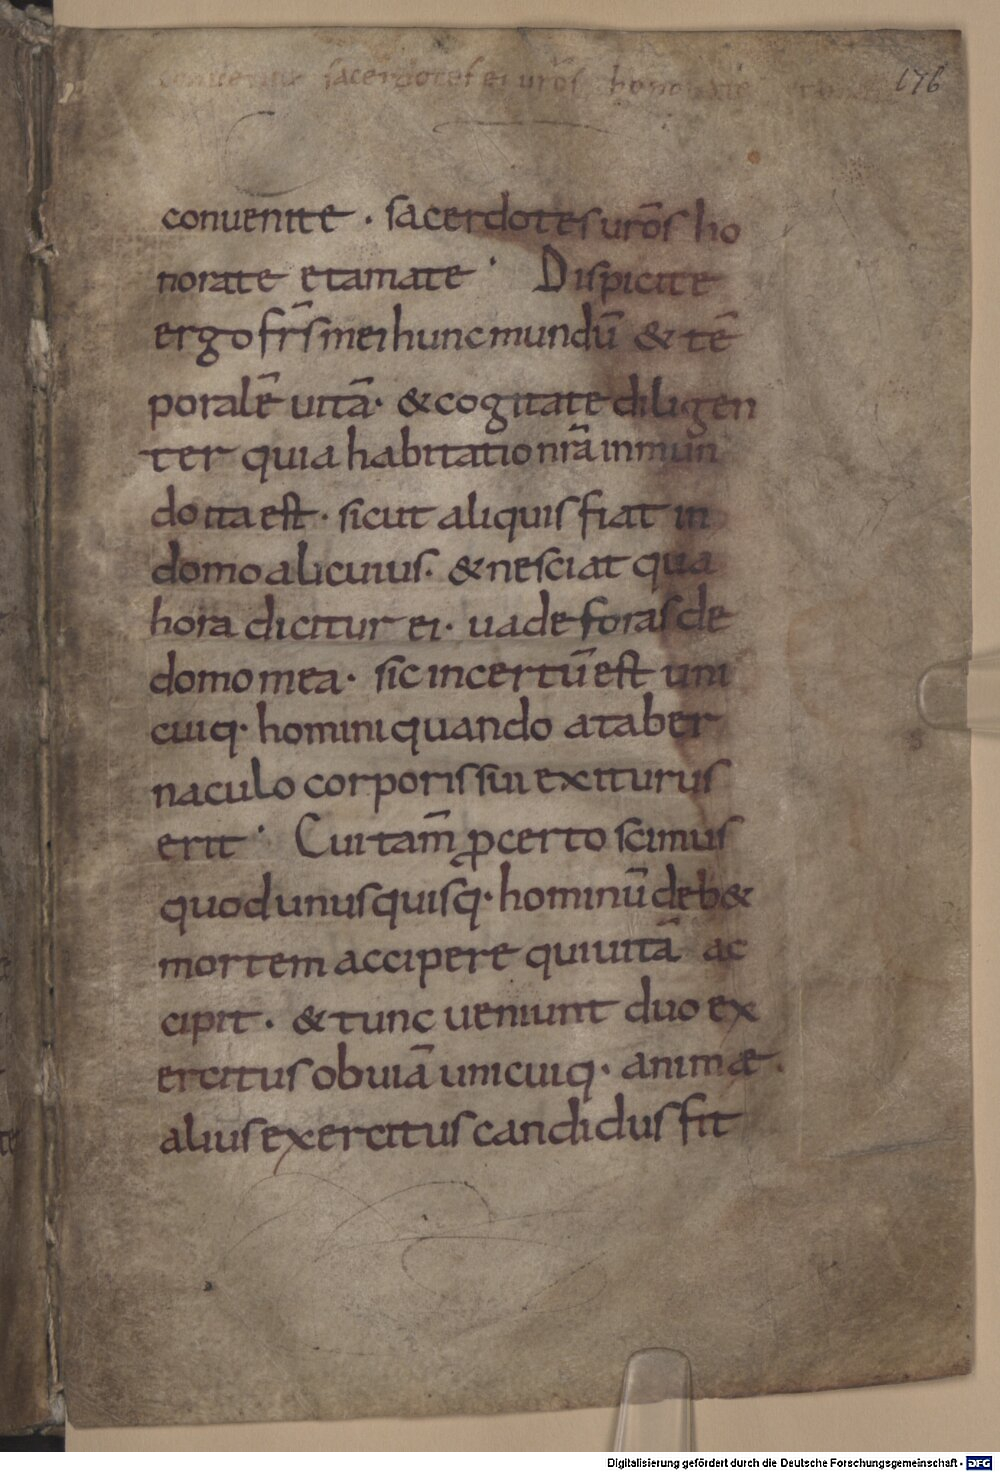 sacerdotes ei ur̄os hono
176
conuenite · sacerdotes ur̄os ho
norate et amate · Dispicite
ergo fr̄s mei hunc mundū & tē
poralē uitā · & cogitate diligen
ter quia habitatio nr̄a in mun
do ita est · sicut aliquis fiat in
domo alicuius · & nesciat qua
hora dicitur ei · uade foras de
domo mea · sic incertū est uni
cuiq· homini quando a taber
naculo corporis sui exiturus
erit · Cui tam̄ ꝓ certo scimus
quod unusquisq· hominū deb&
mortem accipere qui uitā ac
cipit · & tunc ueniunt duo ex
ercitus obuiā unicuiq· animæ ·
alius exercitus candidus fit
Digitalisierung gefördert durch die Deutsche Forschungsgemeinschaft - DFG